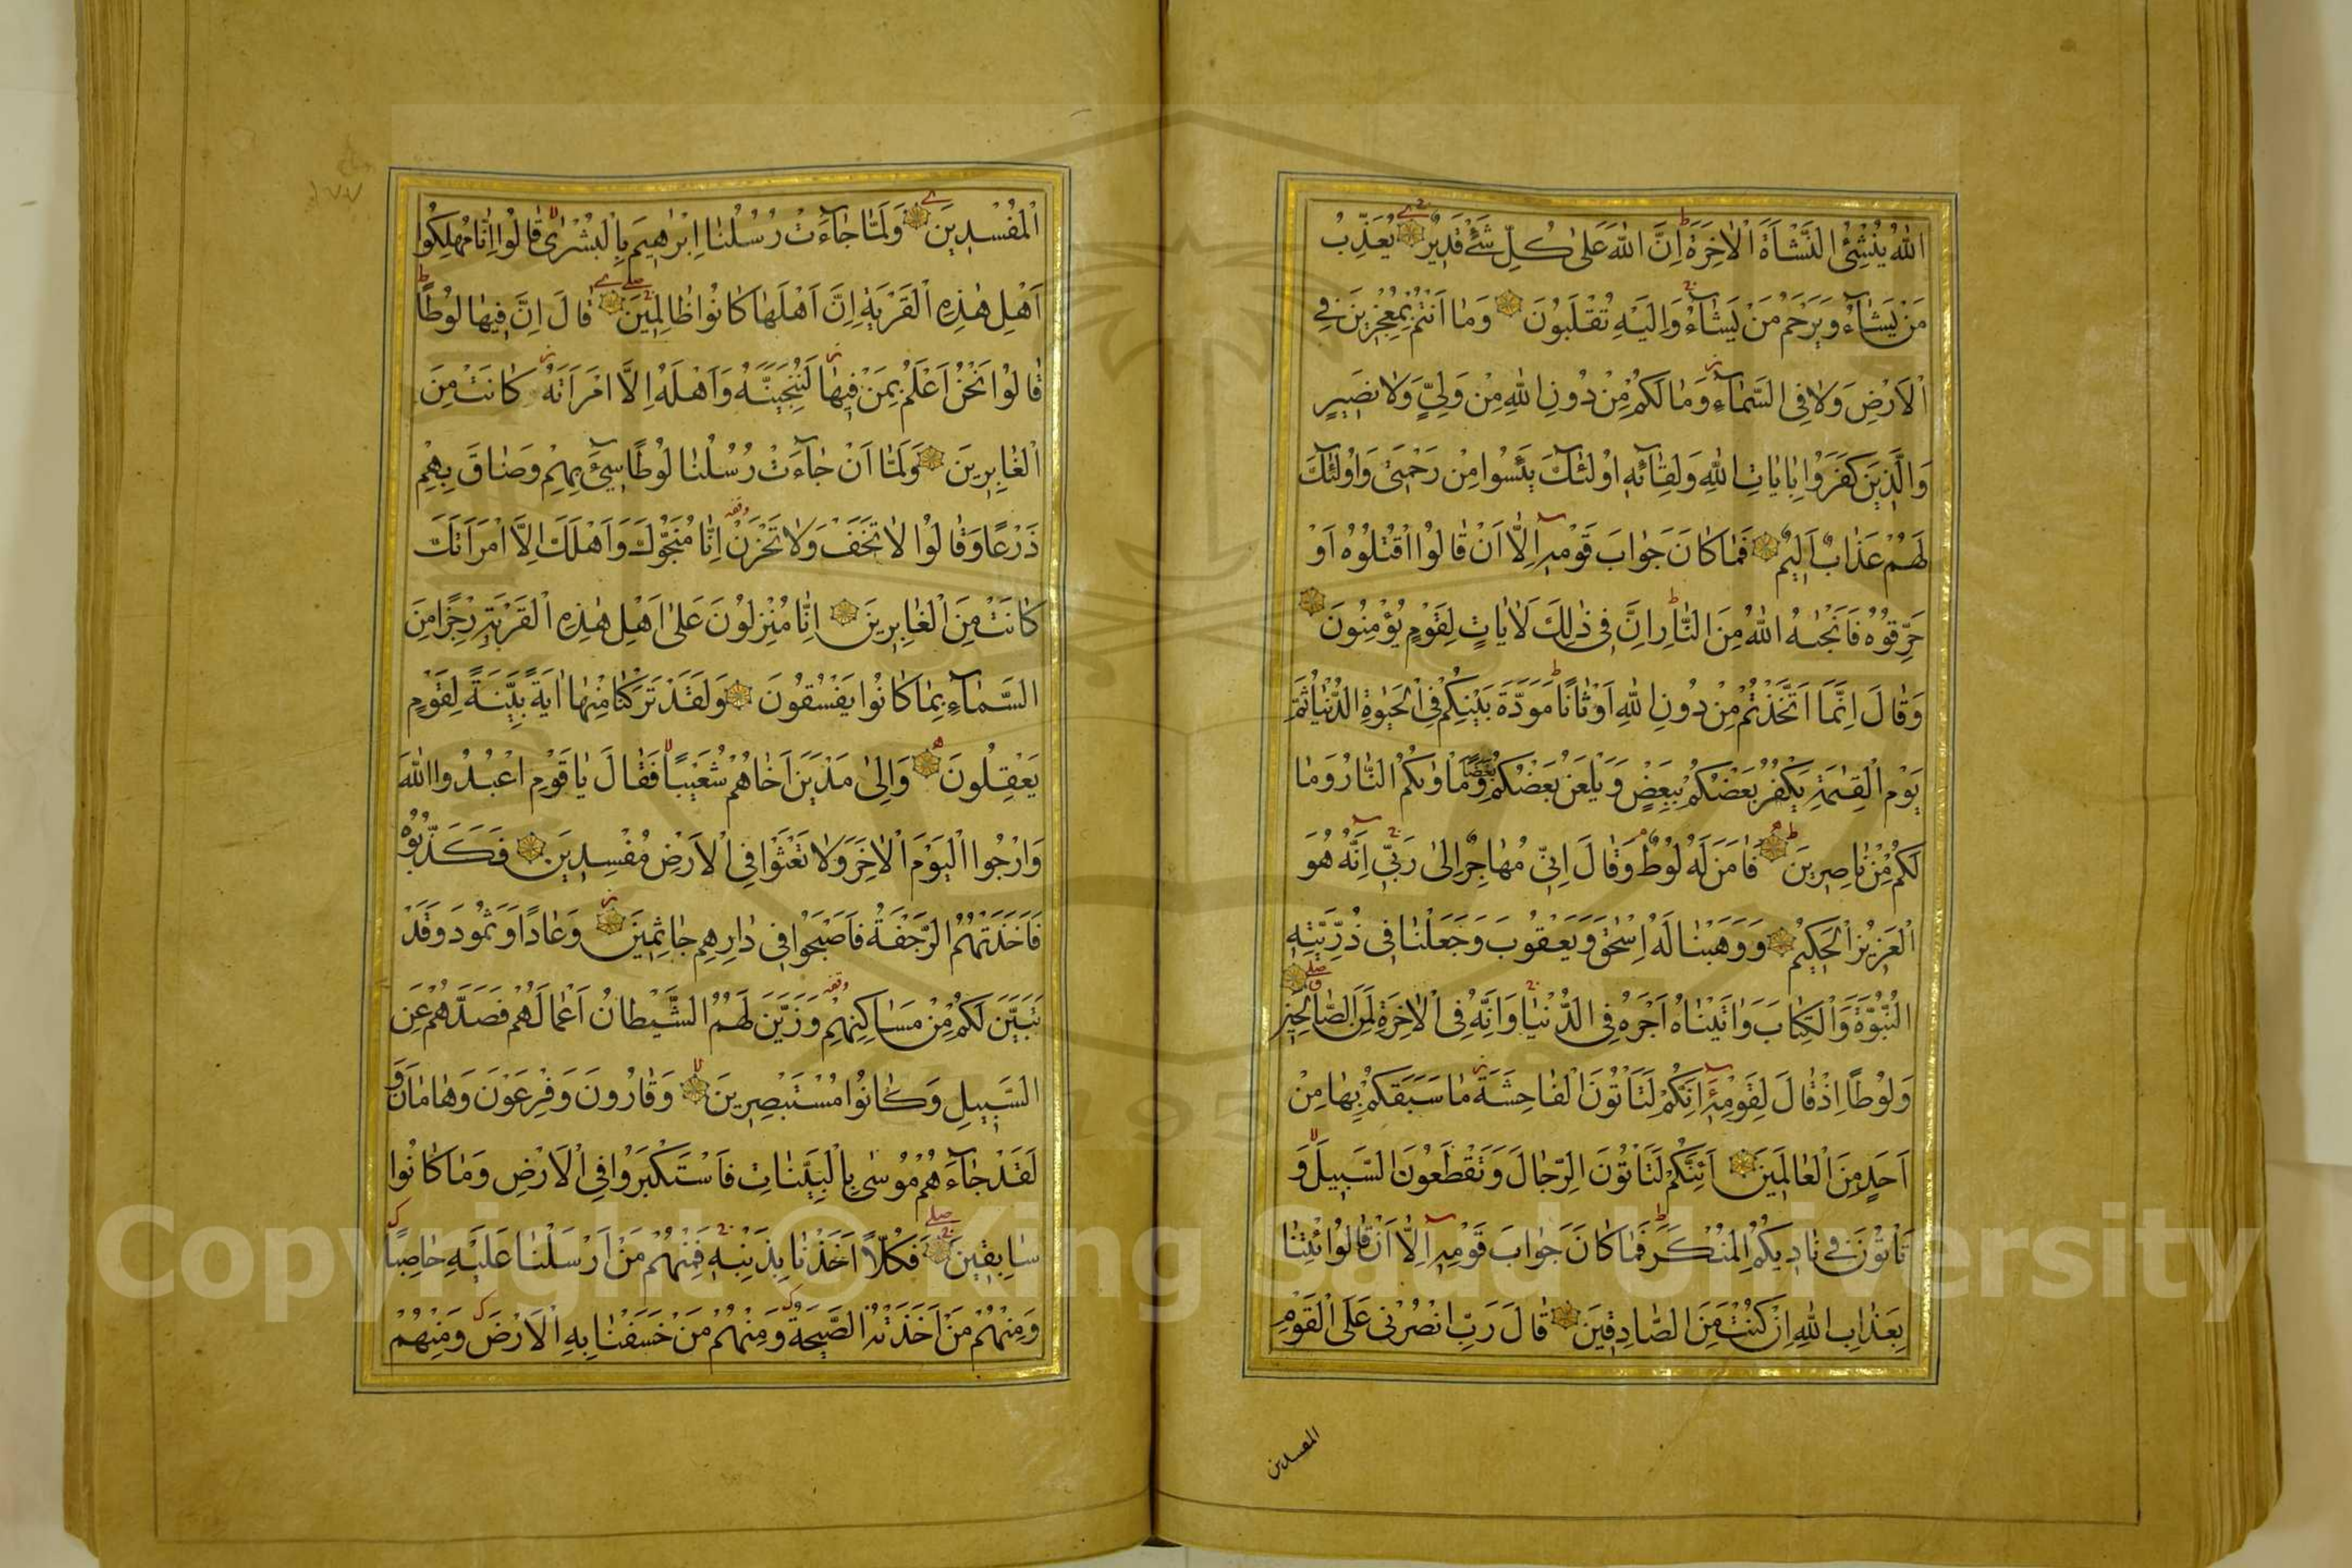 اللّٰهُ يُنْشِئُ النَّشْاَةَ الْاٰخِرَةَ اِنَّ اللّٰهَ عَلٰى كُلِّ شَیْءٍ قَدِيرٌ يُعَذِّبُ
مَنْ يَشَآءُ وَيَرْحَمُ مَنْ يَشَآءُ وَاِلَيْهِ تُقْلَبُونَ وَمَا اَنْتُمْ بِمُعْجِزِينَ فِي
الْاَرْضِ وَلَا فِي السَّمَآءِ وَمَا لَكُمْ مِنْ دُونِ اللّٰهِ مِنْ وَلِيٍّ وَلَا نَصِيرٍ
وَالَّذِينَ كَفَرُوا بِاٰيَاتِ اللّٰهِ وَلِقَآئِهِ اُولٰئِكَ يَئِسُوا مِنْ رَحْمَتِي وَاُولٰئِكَ
لَهُمْ عَذَابٌ اَلِيمٌ فَمَا كَانَ جَوَابَ قَوْمِهِ اِلَّا اَنْ قَالُوا اقْتُلُوهُ اَوْ
حَرِّقُوهُ فَاَنْجٰيهُ اللّٰهُ مِنَ النَّارِ اِنَّ فِي ذٰلِكَ لَاٰيَاتٍ لِقَوْمٍ يُؤْمِنُونَ
وَقَالَ اِنَّمَا اتَّخَذْتُمْ مِنْ دُونِ اللّٰهِ اَوْثَانًا مَوَدَّةَ بَيْنِكُمْ فِي الْحَيٰوةِ الدُّنْيَا ثُمَّ
يَوْمَ الْقِيٰمَةِ يَكْفُرُ بَعْضُكُمْ بِبَعْضٍ وَيَلْعَنُ بَعْضُكُمْ بَعْضًا وَمَاْوٰيكُمُ النَّارُ وَمَا
لَكُمْ مِنْ نَاصِرِينَ فَاٰمَنَ لَهُ لُوطٌ وَقَالَ اِنِّي مُهَاجِرٌ اِلٰى رَبِّي اِنَّهُ هُوَ
الْعَزِيزُ الْحَكِيمُ وَوَهَبْنَا لَهُ اِسْحٰقَ وَيَعْقُوبَ وَجَعَلْنَا فِي ذُرِّيَّتِهِ
النُّبُوَّةَ وَالْكِتَابَ وَاٰتَيْنَاهُ اَجْرَهُ فِي الدُّنْيَا وَاِنَّهُ فِي الْاٰخِرَةِ لَمِنَ الصَّالِحِينَ
وَلُوطًا اِذْ قَالَ لِقَوْمِهِ اِنَّكُمْ لَتَاْتُونَ الْفَاحِشَةَ مَا سَبَقَكُمْ بِهَا مِنْ
اَحَدٍ مِنَ الْعَالَمِينَ اَئِنَّكُمْ لَتَاْتُونَ الرِّجَالَ وَتَقْطَعُونَ السَّبِيلَ وَ
تَاْتُونَ فِي نَادِيكُمُ الْمُنْكَرَ فَمَا كَانَ جَوَابَ قَوْمِهِ اِلَّا اَنْ قَالُوا ائْتِنَا
بِعَذَابِ اللّٰهِ اِنْ كُنْتَ مِنَ الصَّادِقِينَ قَالَ رَبِّ انْصُرْنِي عَلَى الْقَوْمِ
المفسدين
الْمُفْسِدِينَ وَلَمَّا جَآءَتْ رُسُلُنَا اِبْرٰهِيمَ بِالْبُشْرٰى قَالُوا اِنَّا مُهْلِكُوا
اَهْلِ هٰذِهِ الْقَرْيَةِ اِنَّ اَهْلَهَا كَانُوا ظَالِمِينَ قَالَ اِنَّ فِيهَا لُوطًا
قَالُوا نَحْنُ اَعْلَمُ بِمَنْ فِيهَا لَنُنَجِّيَنَّهُ وَاَهْلَهُ اِلَّا امْرَاَتَهُ كَانَتْ مِنَ
الْغَابِرِينَ وَلَمَّا اَنْ جَآءَتْ رُسُلُنَا لُوطًا سِيٓءَ بِهِمْ وَضَاقَ بِهِمْ
ذَرْعًا وَقَالُوا لَا تَخَفْ وَلَا تَحْزَنْ اِنَّا مُنَجُّوكَ وَاَهْلَكَ اِلَّا امْرَاَتَكَ
كَانَتْ مِنَ الْغَابِرِينَ اِنَّا مُنْزِلُونَ عَلٰى اَهْلِ هٰذِهِ الْقَرْيَةِ رِجْزًا مِنَ
السَّمَآءِ بِمَا كَانُوا يَفْسُقُونَ وَلَقَدْ تَرَكْنَا مِنْهَا اٰيَةً بَيِّنَةً لِقَوْمٍ
يَعْقِلُونَ وَاِلٰى مَدْيَنَ اَخَاهُمْ شُعَيْبًا فَقَالَ يَا قَوْمِ اعْبُدُوا اللّٰهَ
وَارْجُوا الْيَوْمَ الْاٰخِرَ وَلَا تَعْثَوْا فِي الْاَرْضِ مُفْسِدِينَ فَكَذَّبُوهُ
فَاَخَذَتْهُمُ الرَّجْفَةُ فَاَصْبَحُوا فِي دَارِهِمْ جَاثِمِينَ وَعَادًا وَثَمُودَ وَقَدْ
تَبَيَّنَ لَكُمْ مِنْ مَسَاكِنِهِمْ وَزَيَّنَ لَهُمُ الشَّيْطَانُ اَعْمَالَهُمْ فَصَدَّهُمْ عَنِ
السَّبِيلِ وَكَانُوا مُسْتَبْصِرِينَ وَقَارُونَ وَفِرْعَوْنَ وَهَامَانَ وَ
لَقَدْ جَآءَهُمْ مُوسٰى بِالْبَيِّنَاتِ فَاسْتَكْبَرُوا فِي الْاَرْضِ وَمَا كَانُوا
سَابِقِينَ فَكُلًّا اَخَذْنَا بِذَنْبِهِ فَمِنْهُمْ مَنْ اَرْسَلْنَا عَلَيْهِ حَاصِبًا
وَمِنْهُمْ مَنْ اَخَذَتْهُ الصَّيْحَةُ وَمِنْهُمْ مَنْ خَسَفْنَا بِهِ الْاَرْضَ وَمِنْهُمْ
١٧٧
Copyright © King Saud University